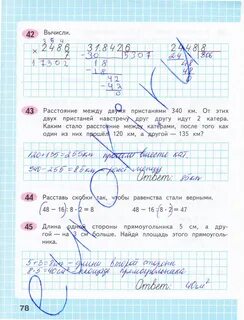 42 Вычисли.
3 5 4
× 2486 31842|6 24448|8
7 -30 5307 24 306
17302 18 4
-18
42
-42
43 Расстояние между двумя пристанями 340 км. От этих
двух пристаней навстречу друг другу идут 2 катера.
Каким стало расстояние между катерами, после того как
один из них прошёл 120 км, а другой — 135 км?
120+135=255км прошли вместе кат.
340-255=85км
Ответ: 85км
44 Расставь скобки так, чтобы равенства стали верными.
(48 - 16) : 8 · 2 = 8 48 - 16 : (8 · 2) = 47
45 Длина одной стороны прямоугольника 5 см, а
другой — на 3 см больше. Найди площадь этого прямоуголь-
ника.
5+3=8см - длина второй стороны
8·5=40см² площадь прямоугольника
Ответ: 40см²
78